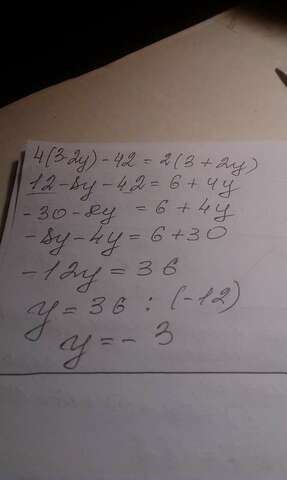 4(3-2y)-42=2(3+2y)
12-8y-42=6+4y
-30-8y =6+4y
-8y-4y=6+30
-12y=36
y=36:(-12)
y=-3